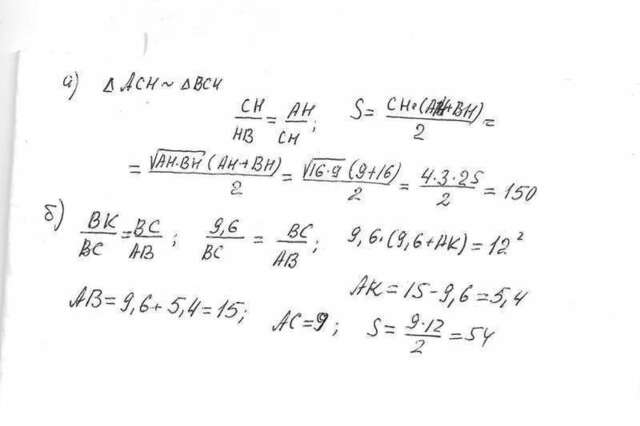 а) △ ACH ~ △BCH
CH/HB = AH/CH; S = CH·(AH+BH)/2 =
= √AH·BH (AH+BH)/2 = √16·9 (9+16)/2 = 4·3·25/2 = 150
б) BK/BC = BC/AB; 9,6/BC = BC/AB; 9,6·(9,6+AK)=12²
AK=15-9,6=5,4
AB=9,6+5,4=15; AC=9; S= 9·12/2 =54